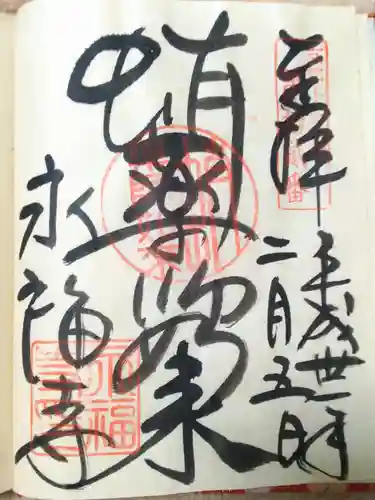 奉拝
平成卅一年
二月五日
蛸薬師如来
永福寺